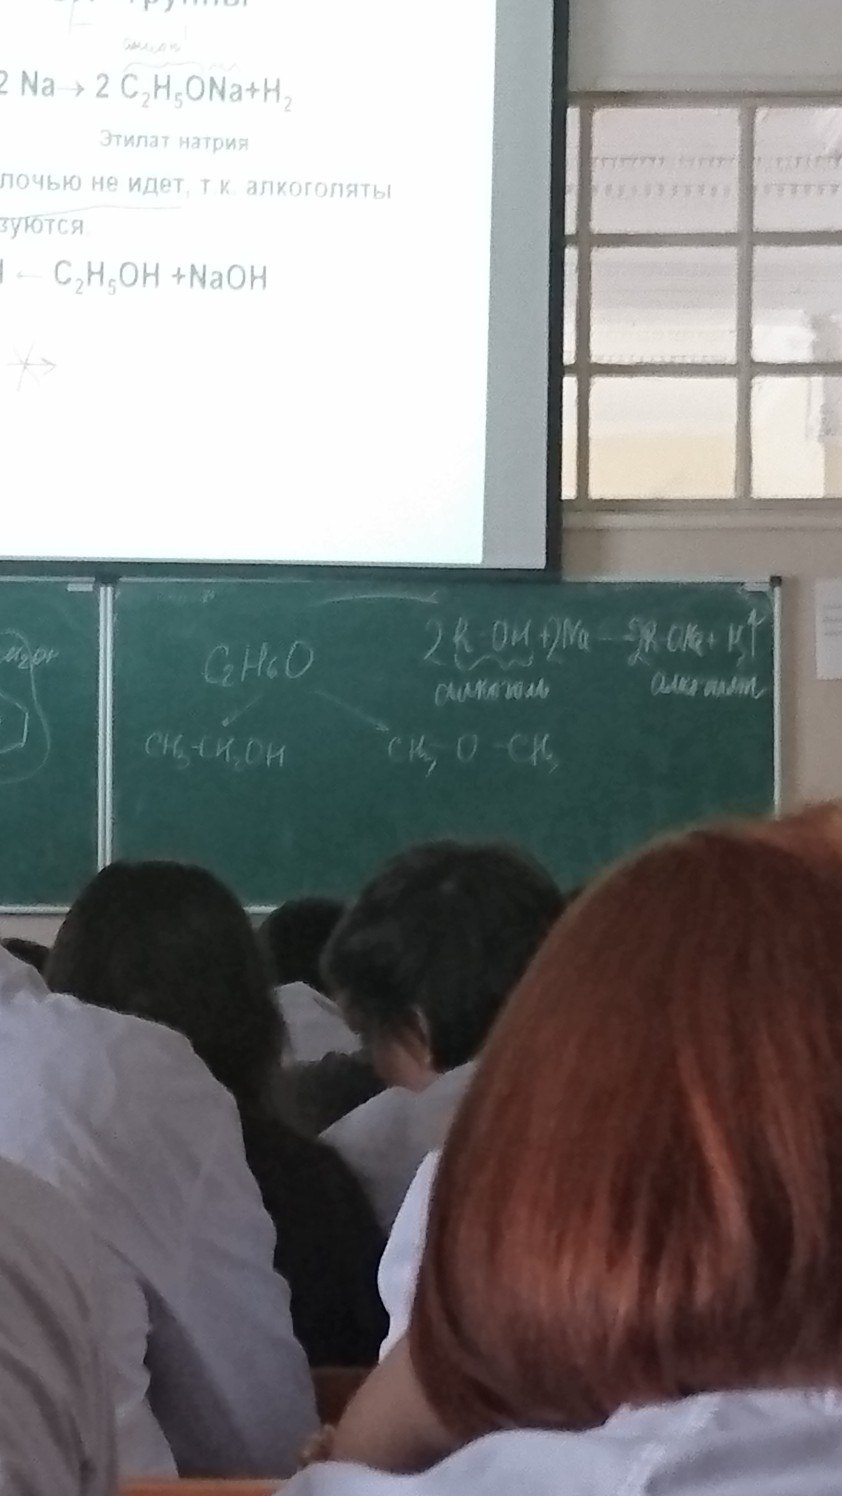 группы
2 Na → 2 C₂H₅ONa+H₂
Этилат натрия
лочью не идет, т к. алкоголяты
зуются
← C₂H₅OH +NaOH
C₂H₆O
CH₃-CH₂OH
CH₃ - O - CH₃
2R-OH + 2Na → 2R-ONa + H₂↑
алкоголь
алкоголят